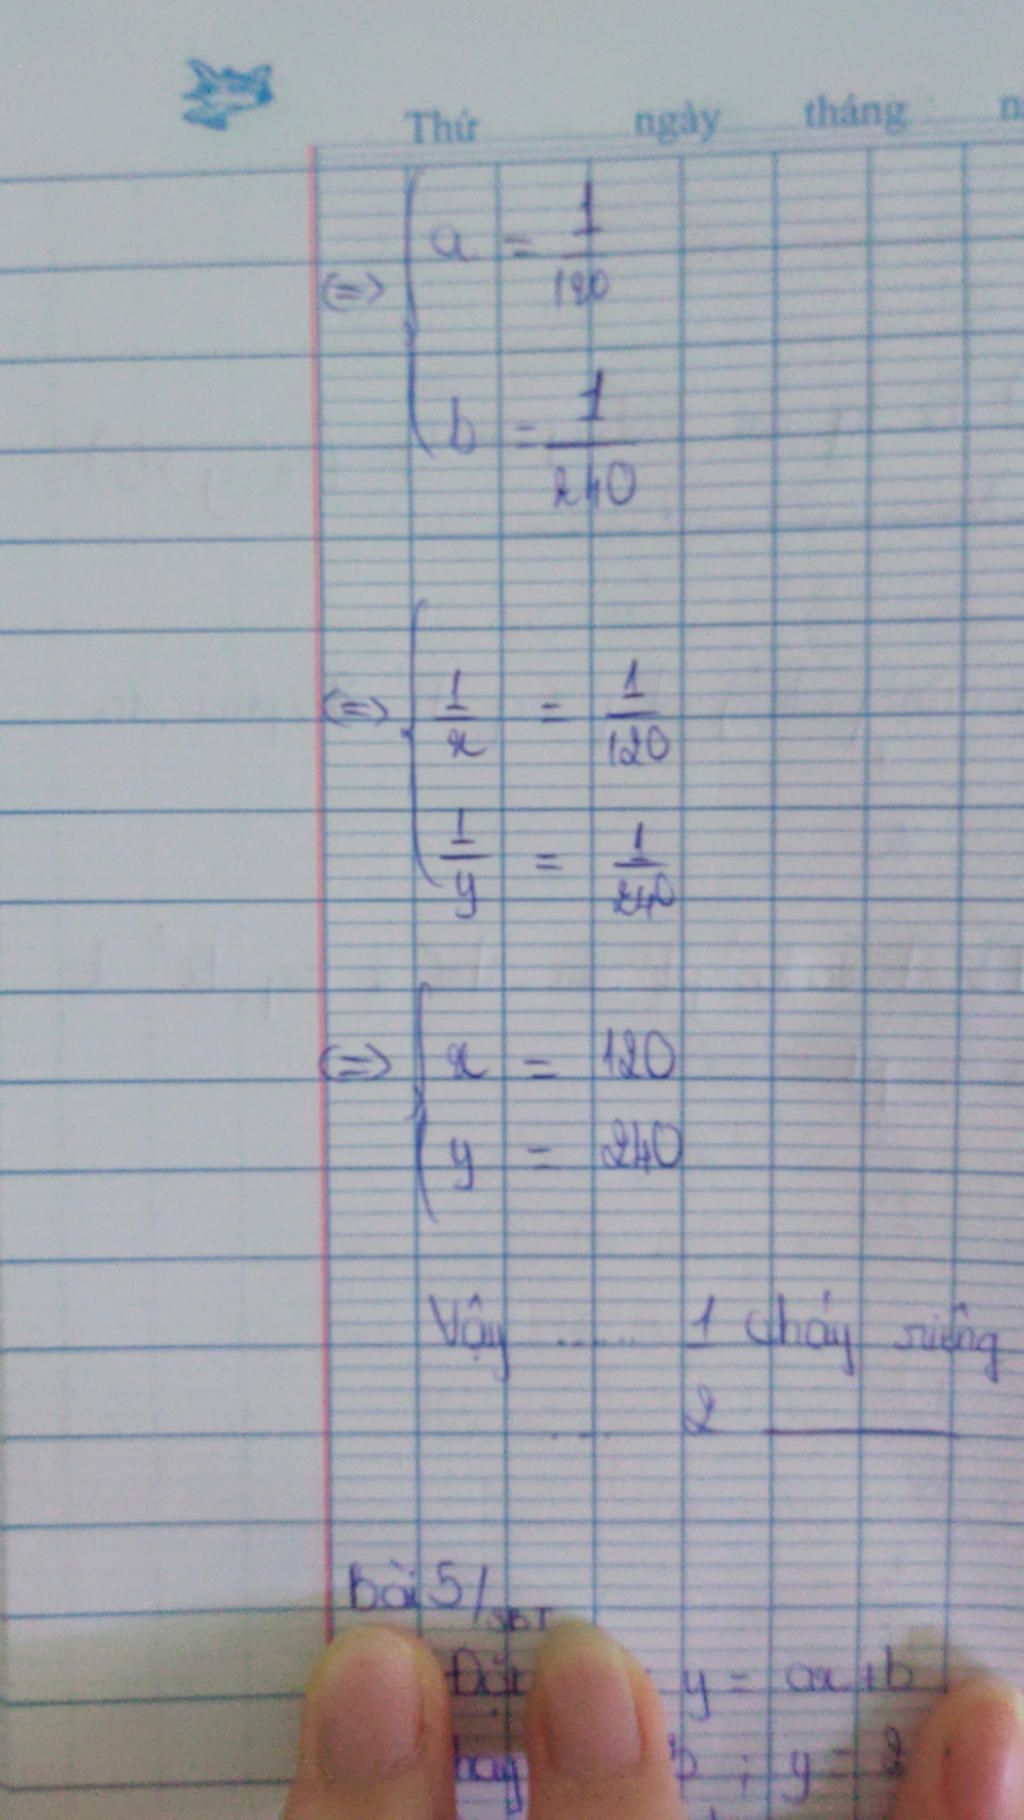 Thứ ngày tháng n
(=> a = 1/120
b = 1/240
(=> 1/x = 1/120
1/y = 1/240
(=> x = 120
y = 240
Vậy ...... 1 chảy riêng
.... 2
bài 5/SBT
y = ax+b
hay ; y = 2